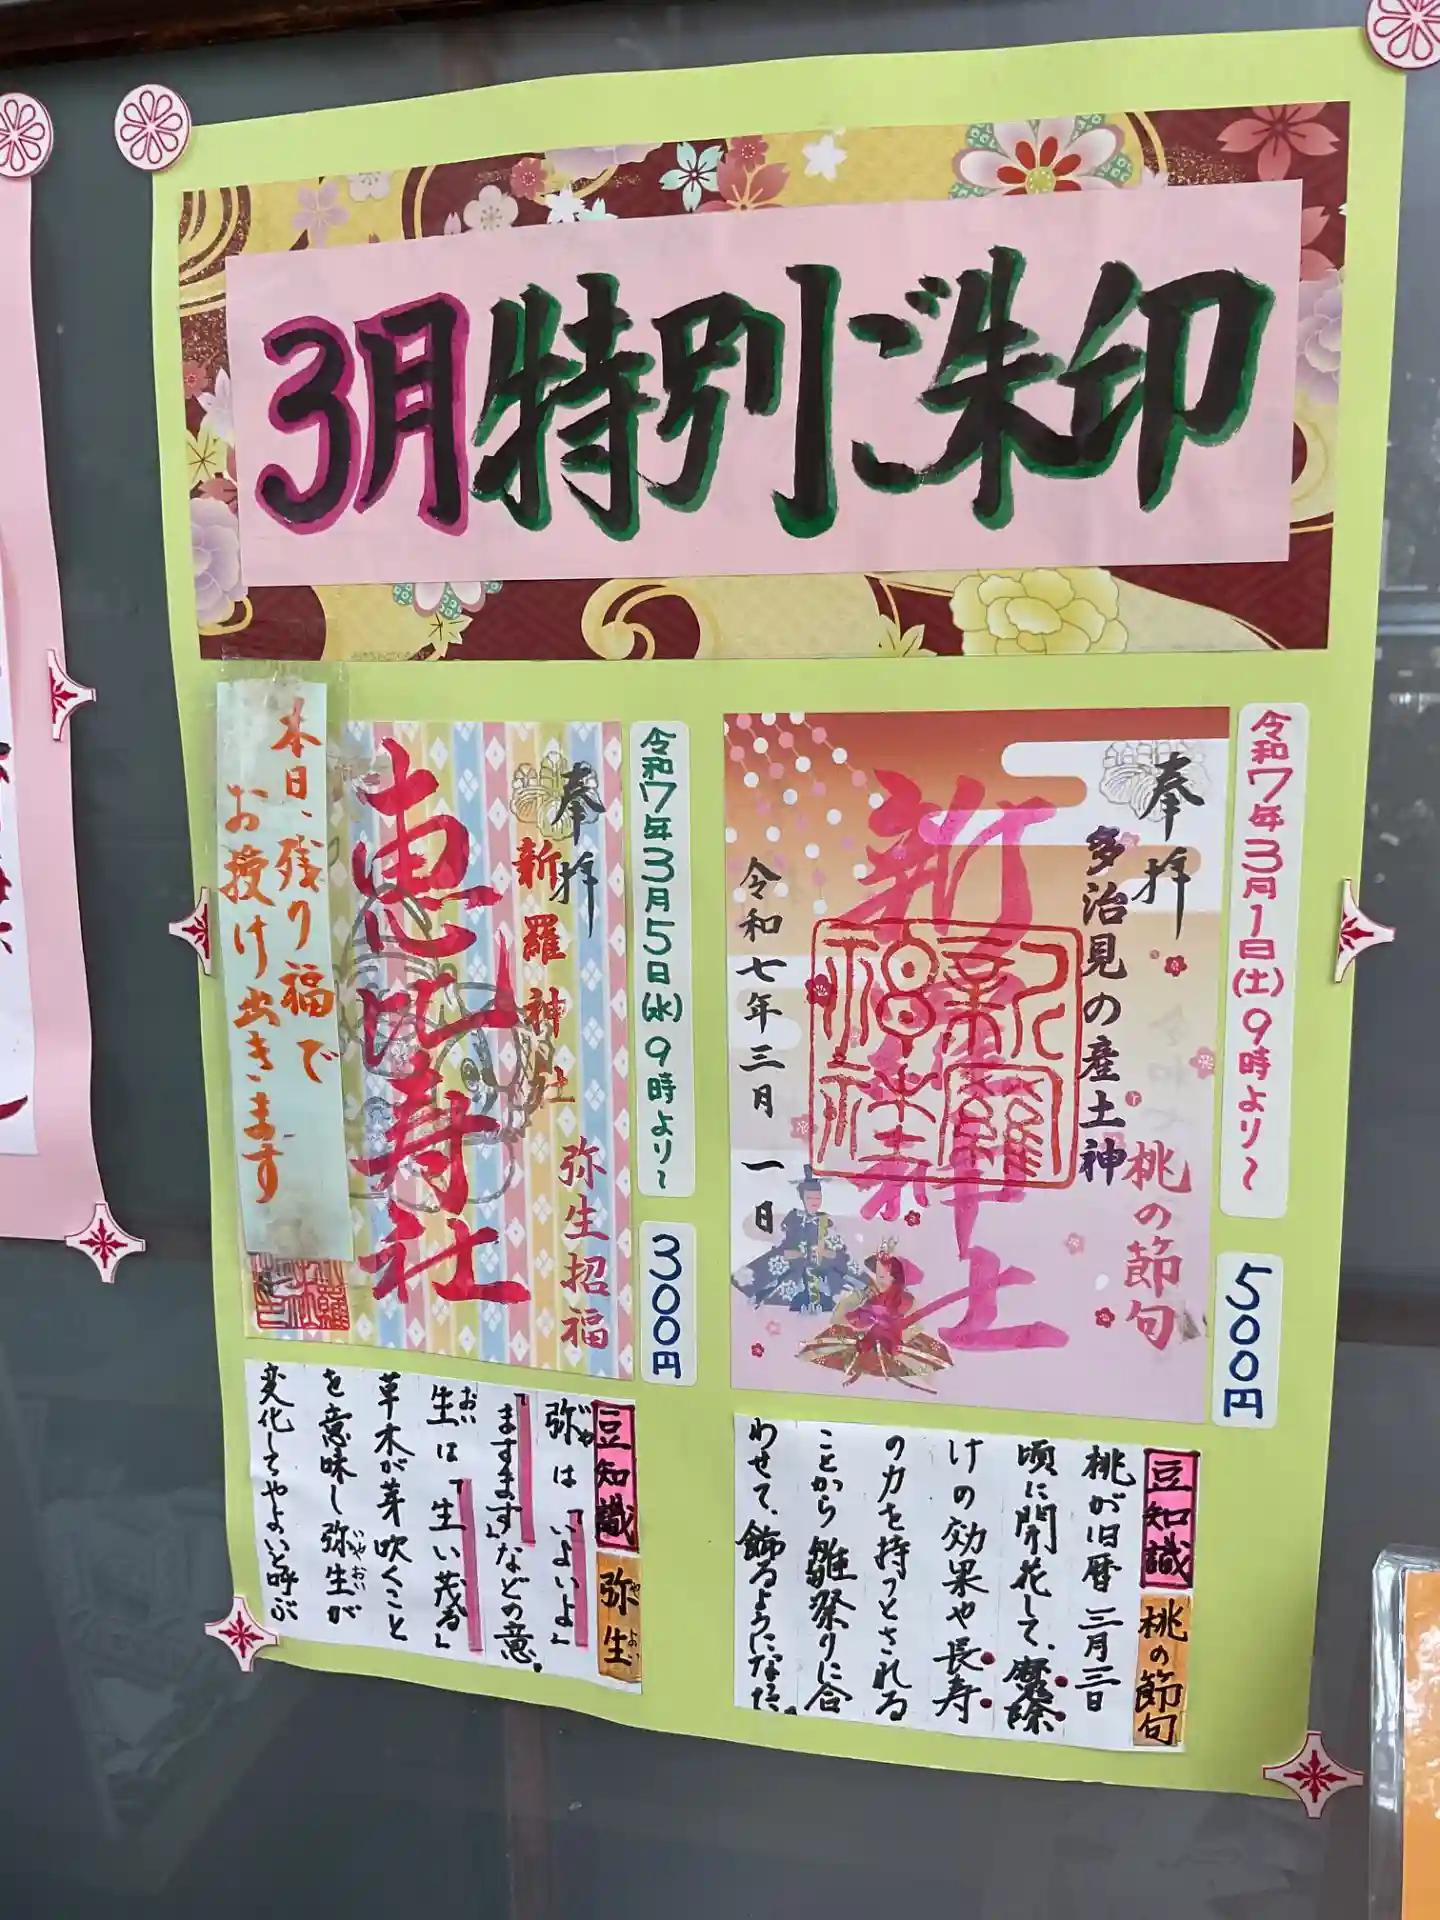 3月特別ご朱印
令和7年3月1日(土)9時より〜
500円
奉拝
多治見の産土神
桃の節句
新羅神社
新羅神社
令和七年三月一日
豆知識 桃の節句
桃が旧暦三月三日
頃に開花して、魔除
けの効果や長寿
の力を持つとされる
ことから雛祭りに合
わせて、飾るようになった。
令和7年3月5日(水)9時より〜
300円
奉拝
新羅神社
弥生招福
恵比寿社
本日、残り福で
お授け出きます
豆知識 弥生
やよい
弥は「いよいよ」
や
「ますます」などの意。
生は「生い茂る」
おい
草木が芽吹くこと
を意味し弥生が
いやおい
変化してやよいと呼ぶ